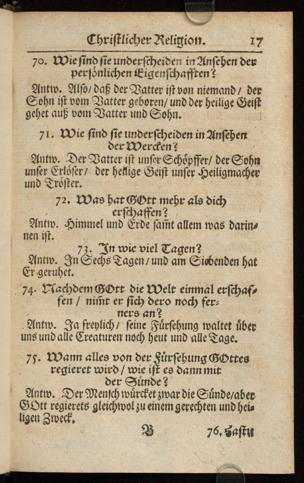 Christlicher Religion. 17
70. Wie sind sie underscheiden in Ansehen der
persönlichen Eigenschafften?
Antw. Also/ daß der Vatter ist von niemand / der
Sohn ist vom Vatter geboren/ und der heilige Geist
gehet auß vom Vatter und Sohn.
71. Wie sind sie underscheiden in Ansehen
der Wercken?
Antw. Der Vatter ist unser Schöpffer/ der Sohn
unser Erlöser/ der heilige Geist unser Heiligmacher
und Tröster.
72. Was hat GOtt mehr als dich
erschaffen?
Antw. Himmel und Erde sam̃t allem was darin-
nen ist.
73. In wie viel Tagen?
Antw. In Sechs Tagen/ und am Siebenden hat
Er geruhet.
74. Nachdem GOtt die Welt einmal erschaf-
fen / nim̃t er sich dero noch fer-
ners an?
Antw. Ja freylich/ seine Fürsehung waltet über
uns und alle Creaturen noch heut und alle Tage.
75. Wann alles von der Fürsehung GOttes
regieret wird / wie ist es dann mit
der Sünde?
Antw. Der Mensch würcket zwar die Sünde/aber
GOtt regierets gleichwol zu einem gerechten und hei-
ligen Zweck.
B 76. Hastu